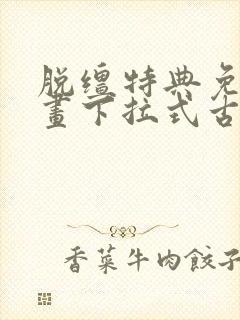 脱缰特典免
画下拉式古
香菜牛肉餃子